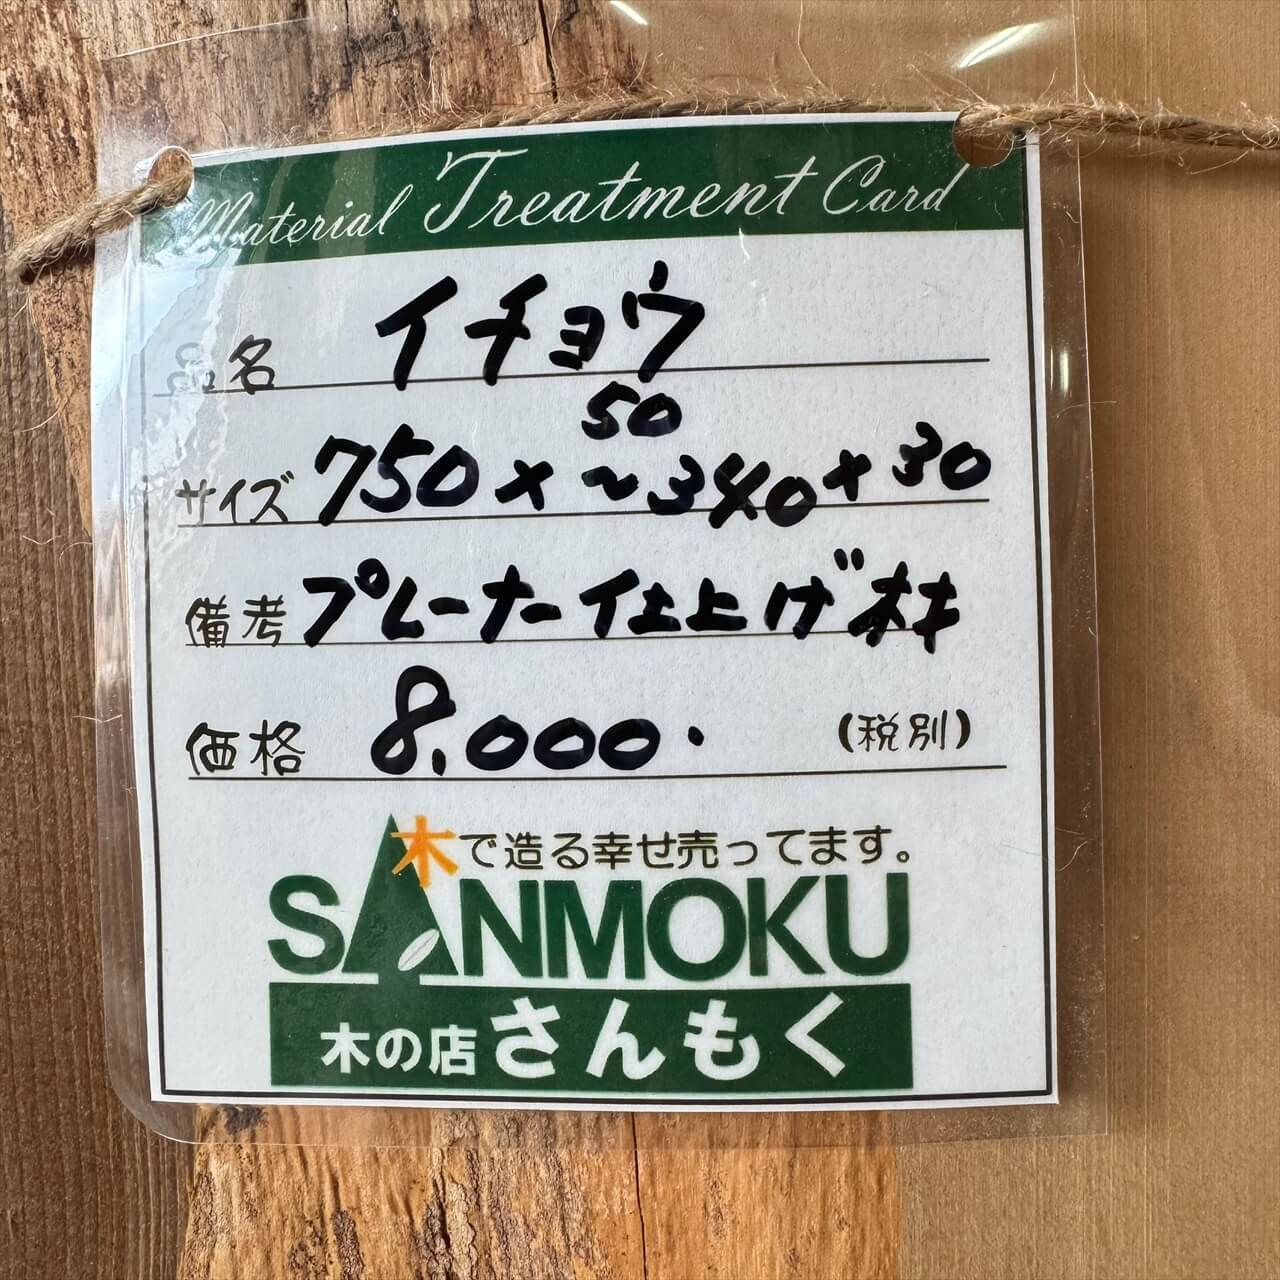 Material Treatment Card
品名 イチョウ
サイズ 750 × 50 ~ 340 × 30
備考 プレーナー仕上げ材
価格 8,000. (税別)
木で造る幸せ売ってます。
SANMOKU
木の店さんもく